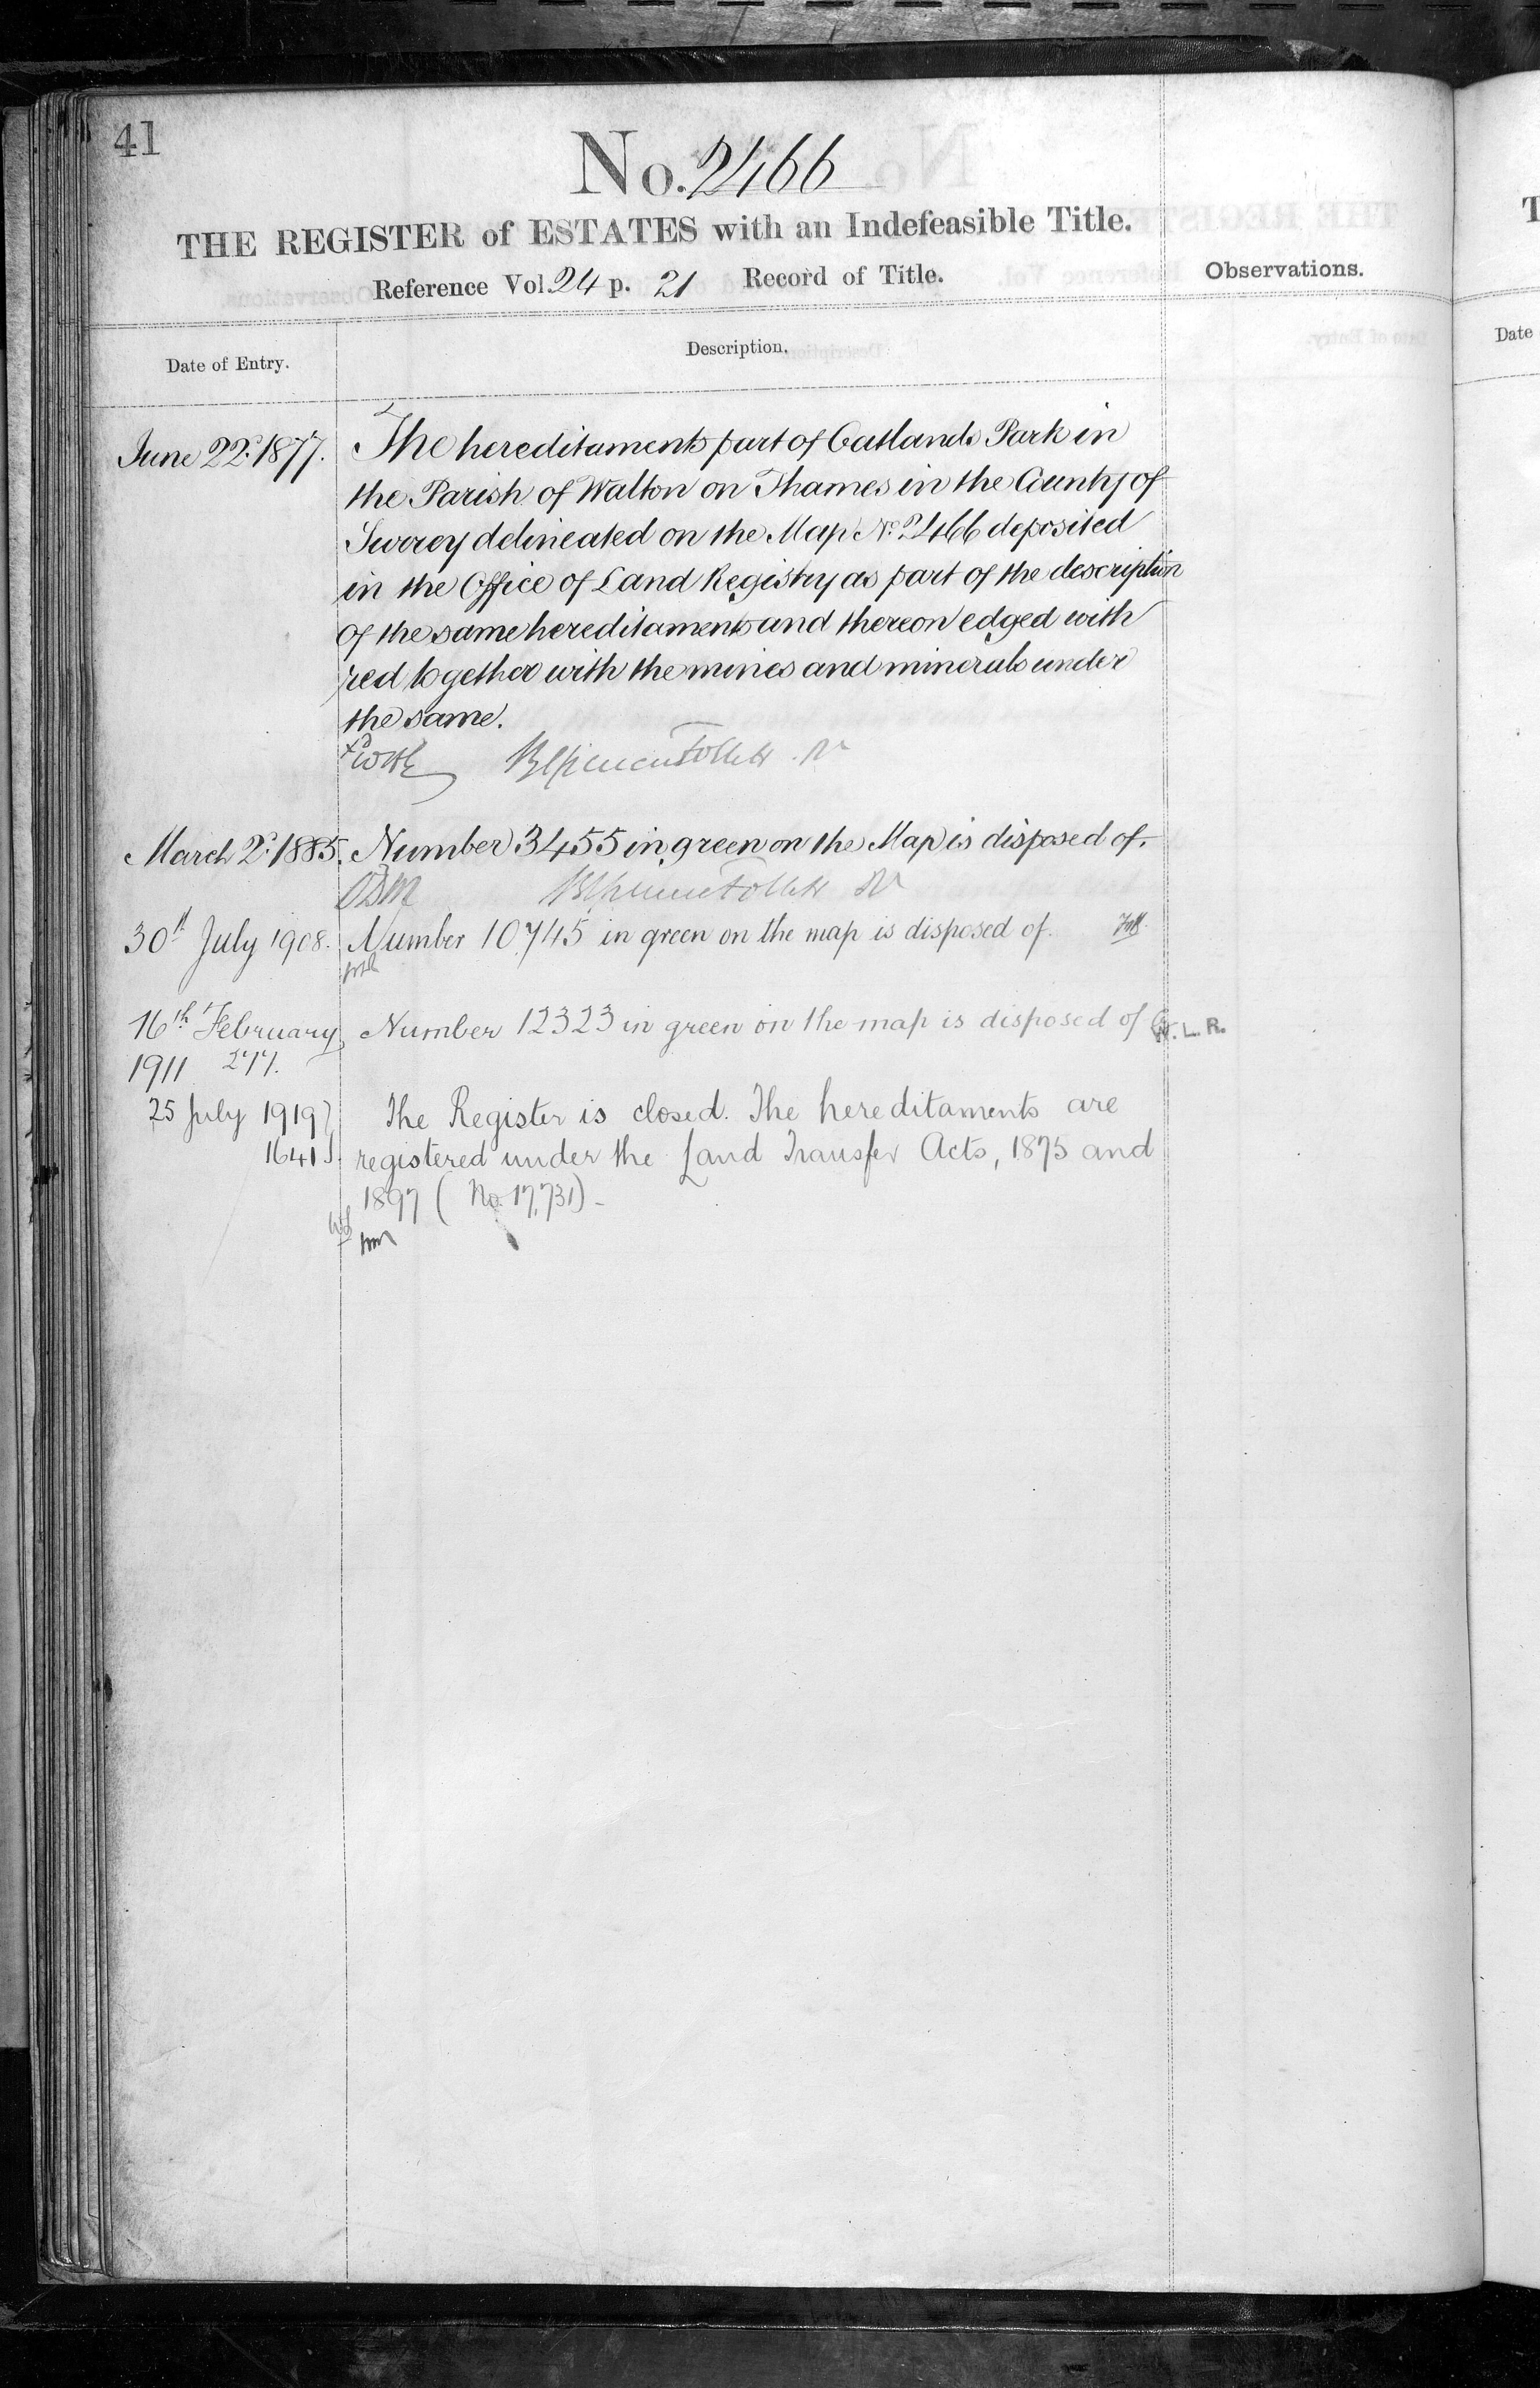 41
No. 2466
THE REGISTER of ESTATES with an Indefeasible Title.
Reference Vol. 24 p. 21 Record of Title.
Observations.
Date of Entry.
Description.
June 22d. 1877. The hereditaments part of Oatlands Park in
the Parish of Walton on Thames in the County of
Surrey delineated on the Map No. 2466 deposited
in the Office of Land Registry as part of the description
of the same hereditaments and thereon edged with
red together with the mines and minerals under
the same.
March 2d. 1885. Number 3455 in green on the Map is disposed of.
30th July 1908. Number 10,745 in green on the map is disposed of.
16th February Number 12323 in green on the map is disposed of W.L.R.
1911 277.
25 July 1919 The Register is closed. The hereditaments are
1641 registered under the Land Transfer Acts, 1875 and
1897 (No. 17,731) -
Date